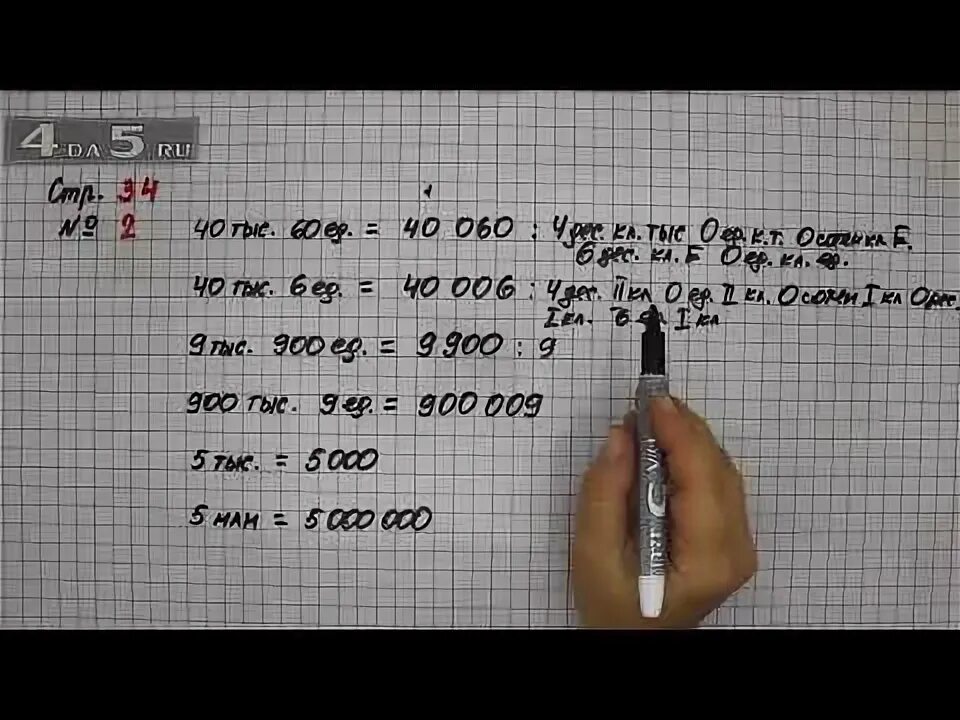 4 DA 5 .RU
Стр. 34
№ 2
40 тыс. 60 ед. = 40 060 : 4 дес. кл. тыс 0 ед. к.т. 0 сотен кл E.
6 дес. кл. E 0 ед. кл. ед.
40 тыс. 6 ед. = 40 006 : 4 дес. II кл 0 ед. II кл. 0 сотен I кл 0 дес.
I кл. 6 I кл
9 тыс. 900 ед. = 9 900 : 9
900 тыс. 9 ед. = 900 009
5 тыс. = 5 000
5 млн = 5 000 000